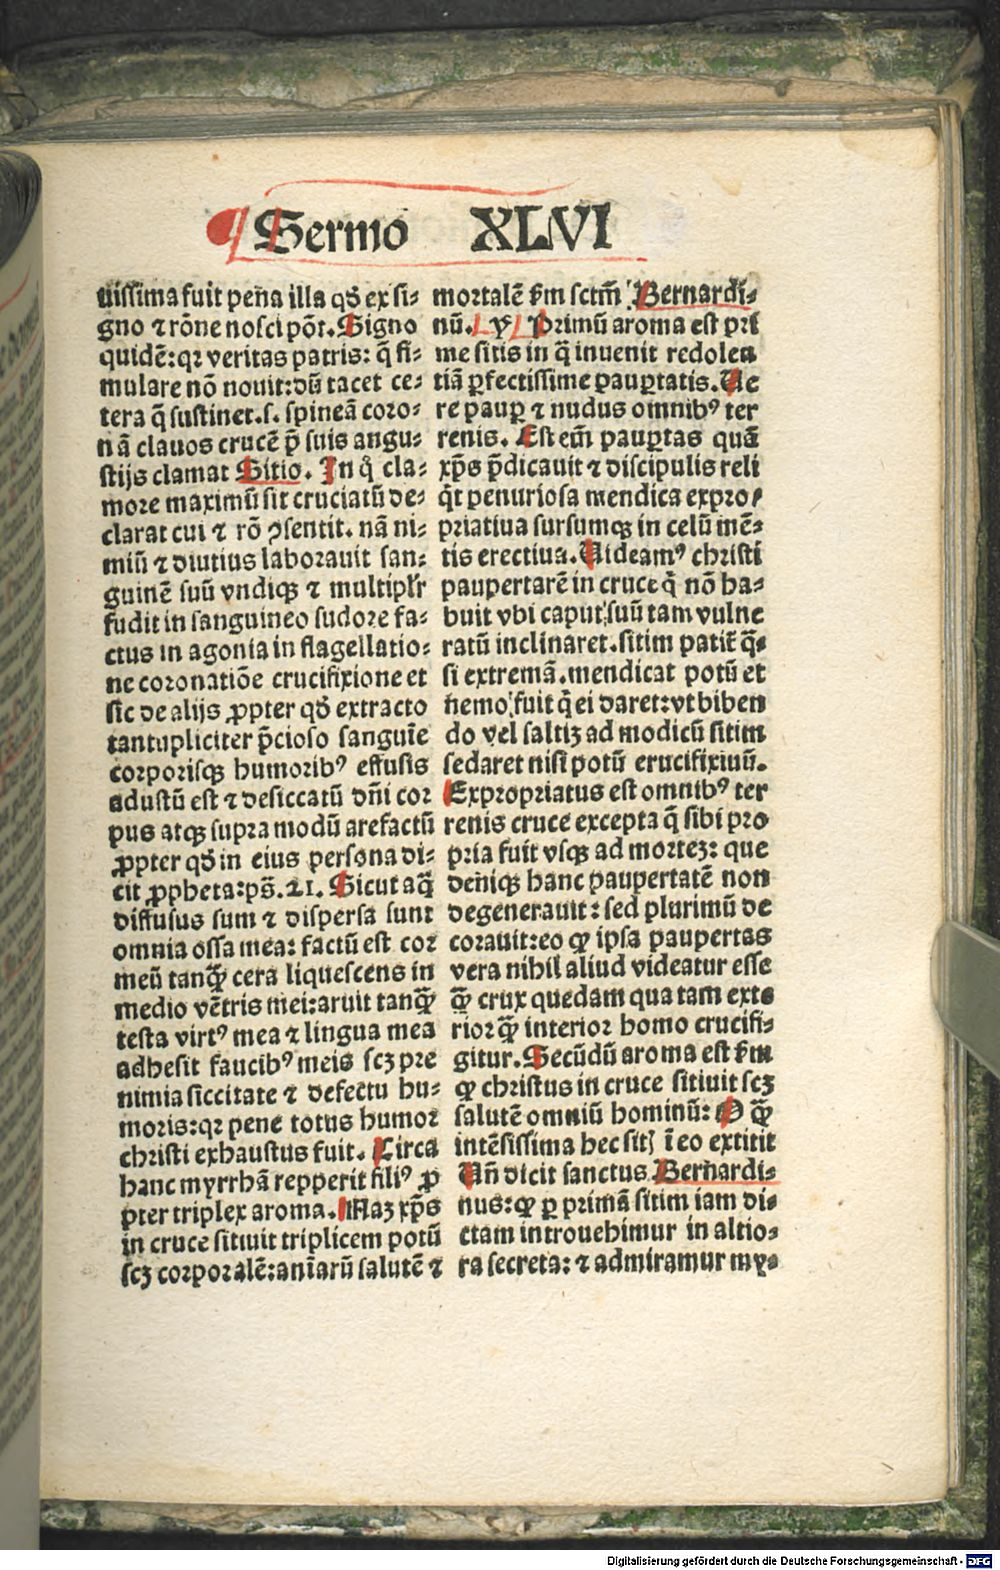 Sermo XLVI
uissima fuit pena illa qð ex si-
gno ⁊ rõne nosci põt. Signo
quidẽ: qꝛ veritas patris: q̃ si-
mulare nõ nouit: dũ tacet ce-
tera q̃ sustinet .s. spineã coro-
nã clauos crucẽ p̃ suis angu-
stijs clamat Sitio. In q̊ cla-
more maximũ sit cruciatũ de-
clarat cui ⁊ rõ ꝯsentit. nã ni-
miũ ⁊ diutius laborauit san-
guinẽ suũ vndiqꝫ ⁊ multipłr
fudit in sanguineo sudore fa-
ctus in agonia in flagellatio-
ne coronatiõe crucifixione et
sic de alijs ꝓpter qð extracto
tantupliciter p̃cioso sanguĩe
corporisqꝫ humoribꝰ effusis
adustũ est ⁊ desiccatũ dñi cor
pus atqꝫ supra modũ arefactũ
ꝓpter qð in eius persona di-
cit ꝓpheta: ps̃. 21. Sicut aq̃
diffusus sum ⁊ dispersa sunt
omnia ossa mea: factũ est cor
meũ tanqꝫ̃ cera liquescens in
medio vẽtris mei: aruit tanqꝫ̃
testa virtꝰ mea ⁊ lingua mea
adhesit faucibꝰ meis scꝫ pre
nimia siccitate ⁊ defectu hu-
moris: qꝛ pene totus humor
christi exhaustus fuit. Circa
hanc myrrhã repperit filiꝰ ꝓ
pter triplex aroma. Naꝫ xp̃s
in cruce sitiuit triplicem potũ
scꝫ corporalẽ: anĩarũ salutẽ ⁊
mortalẽ ẜm sctm̃ Bernardi-
nũ. ꝟ Primũ aroma est pri
me sitis in q̃ inuenit redolen
tiã ꝑfectissime pauꝑtatis. Ue
re pauꝑ ⁊ nudus omnibꝰ ter
renis. Est em̃ pauꝑtas quã
xp̃s p̃dicauit ⁊ discipulis reli
q̇t penuriosa mendica expro-
priatiua sursumqꝫ in celũ mẽ-
tis erectiua. Uideamꝰ christi
paupertarẽ in cruce q̃ nõ ha-
buit vbi caput suũ tam vulne
ratũ inclinaret. sitim patit̃ q̃-
si extremã. mendicat potũ et
nemo fuit q̃ ei daret: vt biben
do vel saltiꝫ ad modicũ sitim
sedaret nisi potũ crucifixiuũ.
Expropriatus est omnibꝰ ter
renis cruce excepta q̃ sibi pro
pria fuit vsqꝫ ad morteꝫ: que
deniqꝫ hanc paupertatẽ non
degenerauit: sed plurimũ de
corauit: eo ꝙ ipsa paupertas
vera nihil aliud videatur esse
qꝫ̃ crux quedam qua tam exte
rior qꝫ̃ interior homo crucifi-
gitur. Secũdũ aroma est ẜm
ꝙ christus in cruce sitiuit scꝫ
salutẽ omniũ hominũ: O qꝫ̃
intẽsissima hec sit ĩ eo extitit
Uñ dicit sanctus Bernardi-
nus: ꝙ ꝑ primã sitim iam di-
ctam introuehimur in altio-
ra secreta: ⁊ admiramur my-
Digitalisierung gefördert durch die Deutsche Forschungsgemeinschaft - DFG